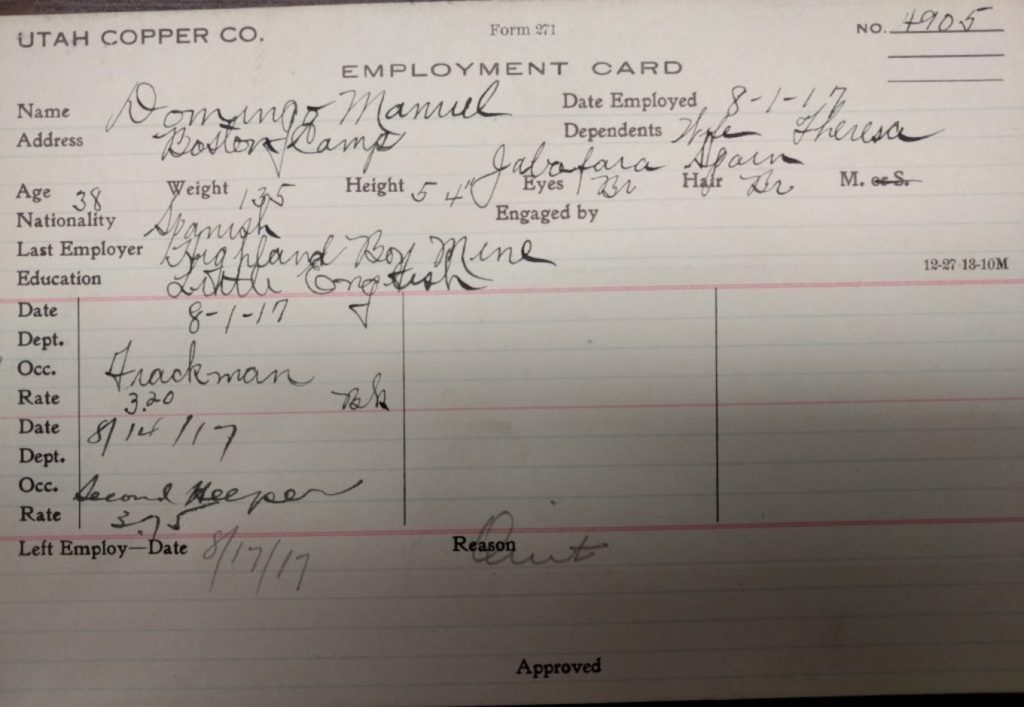 UTAH COPPER CO. Form 271 NO. 4905
EMPLOYMENT CARD
Name Domingo Manuel Date Employed 8-1-17
Address Boston Camp Dependents Wife Theresa
Jabafara Spain
Age 38 Weight 135 Height 5 4" Eyes Br Hair Br M. or S.
Nationality Spanish Engaged by
Last Employer Highland Boy Mine
Education Little English 12-27-13-10M
Date 8-1-17
Dept.
Occ. Trackman
Rate 3.20
Date 8/14/17
Dept.
Occ. Second Keeper
Rate 3.75
Left Employ—Date 8/17/17 Reason Quit
Approved